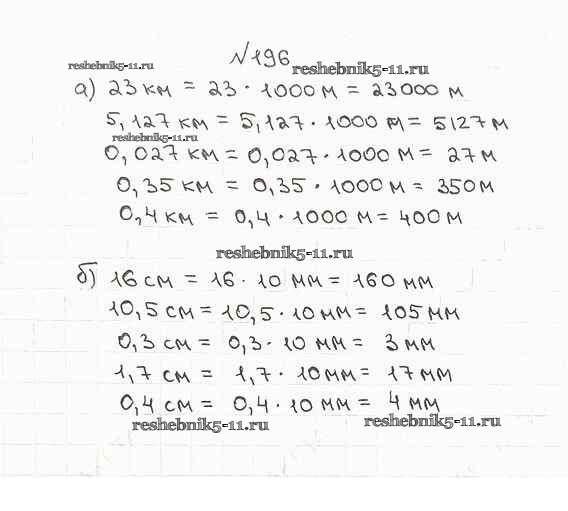 №196
reshebnik5-11.ru
reshebnik5-11.ru
а) 23 км = 23 · 1000 м = 23000 м
5,127 км = 5,127 · 1000 м = 5127 м
reshebnik5-11.ru
0,027 км = 0,027 · 1000 м = 27 м
0,35 км = 0,35 · 1000 м = 350 м
0,4 км = 0,4 · 1000 м = 400 м
reshebnik5-11.ru
б) 16 см = 16 · 10 мм = 160 мм
10,5 см = 10,5 · 10 мм = 105 мм
0,3 см = 0,3 · 10 мм = 3 мм
1,7 см = 1,7 · 10 мм = 17 мм
0,4 см = 0,4 · 10 мм = 4 мм
reshebnik5-11.ru
reshebnik5-11.ru